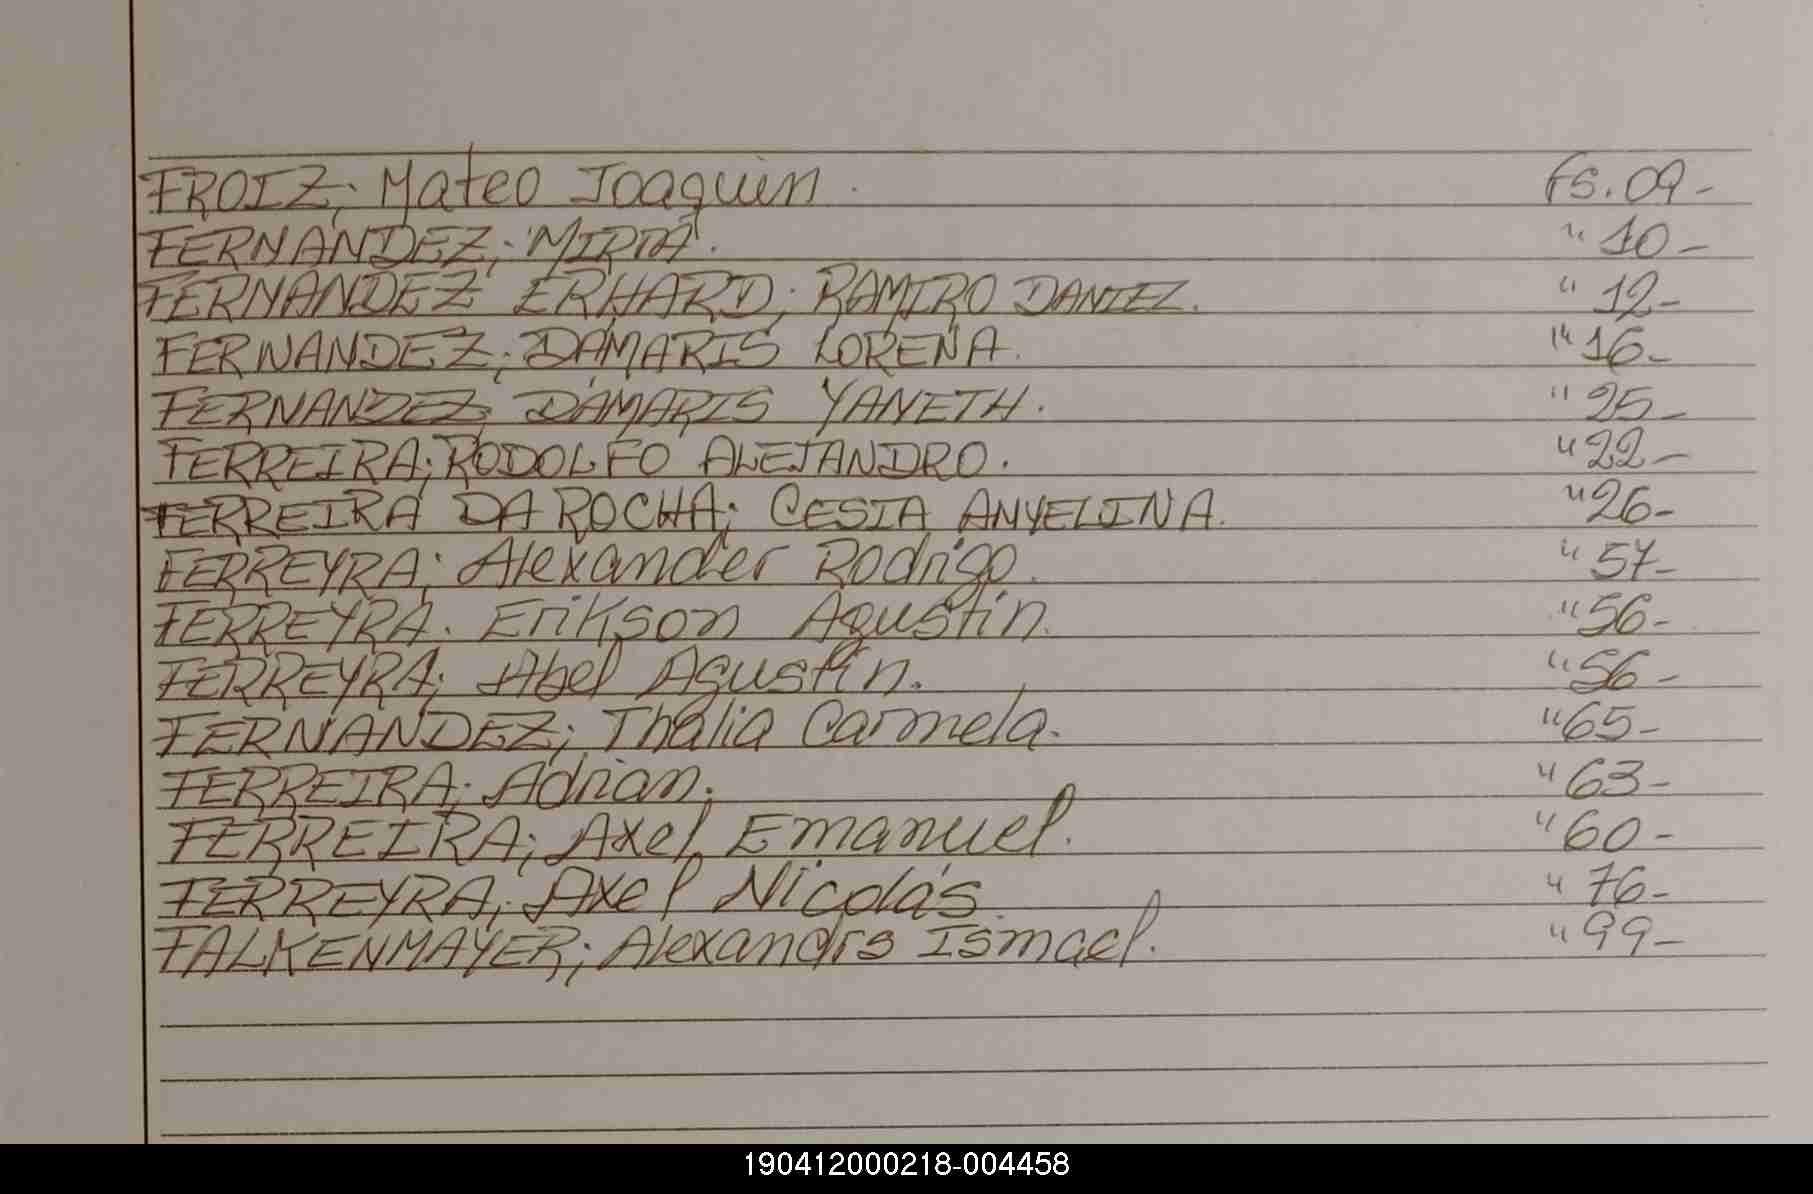 FROIZ; Mateo Joaquin. Fs. 09-
FERNANDEZ; MIRTA. " 10-
FERNANDEZ ERHARD; RAMIRO DANIEL. " 12-
FERNANDEZ; DÁMARIS LORENA. " 16-
FERNANDEZ; DÁMARIS YANETH. " 25-
FERREIRA; RODOLFO ALEJANDRO. " 22-
FERREIRA DA ROCHA; CESIA ANYELINA. " 26-
FERREYRA; Alexander Rodrigo. " 57-
FERREYRA. Erikson Agustin. " 56-
FERREYRA; Abel Agustín. " 56-
FERNANDEZ; Thalia Carmela. " 65-
FERREIRA; Adrian. " 63-
FERREIRA; Axel Emanuel. " 60-
FERREYRA; Axel Nicolás. " 76-
FALKENMAYER; Ismael. " 99-
190412000218-004458